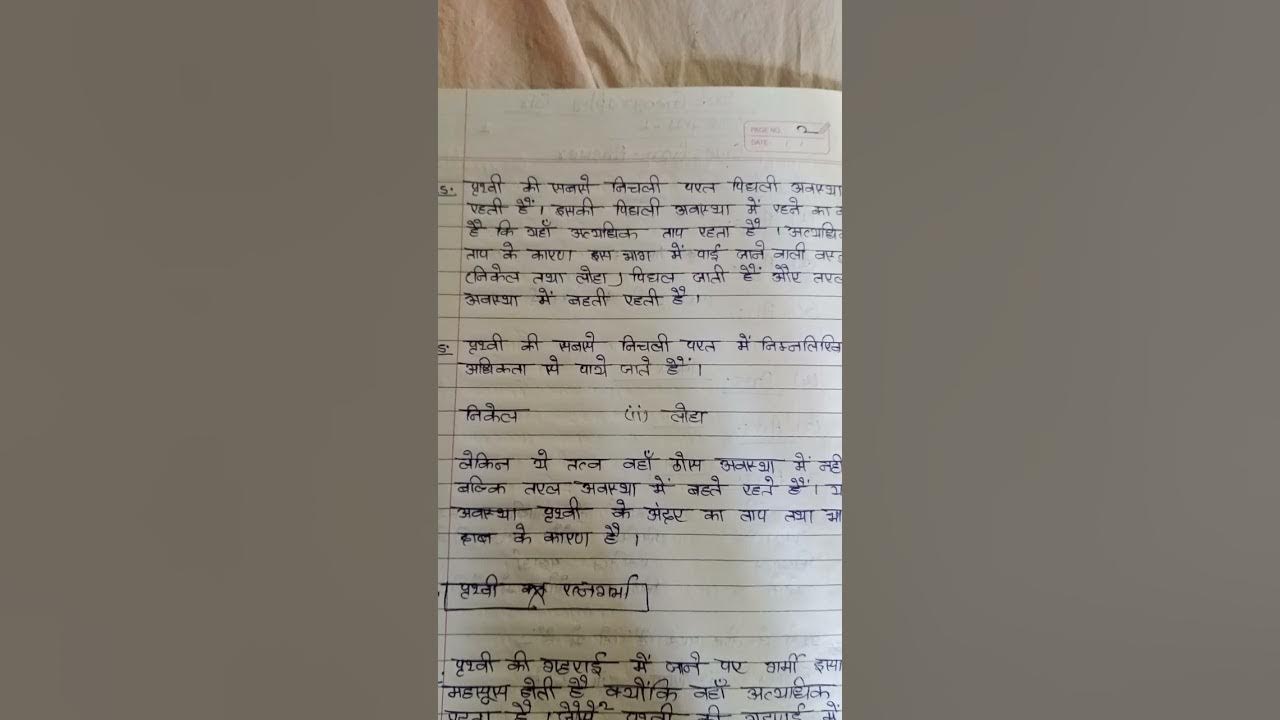 PAGE NO. 2
DATE / /
5. पृथ्वी की सबसे निचली परत पिघली अवस्था
रहती हैं। इसकी पिघली अवस्था में रहने का
है कि यहाँ अत्यधिक ताप रहता है। अत्यधि
ताप के कारण इस भाग में पाई जाने वाली वस्
(निकेल तथा लोहा) पिघल जाती हैं और तरल
अवस्था में बहती रहती है।
5. पृथ्वी की सबसे निचली परत में निम्नलिखि
अधिकता से पाये जाते हैं।
निकेल (ii) लोहा
लेकिन ये तत्व वहाँ ठोस अवस्था में नही
बल्कि तरल अवस्था में बहते रहते हैं।
अवस्था पृथ्वी के अंदर का ताप तथा
दाब के कारण है।
पृथ्वी रत्नगर्भा
पृथ्वी की गहराई में जाने पर गर्मी
महासूस होती है क्योंकि वहाँ अत्यधिक
रहता है। जैसे पृथ्वी की गहराई में